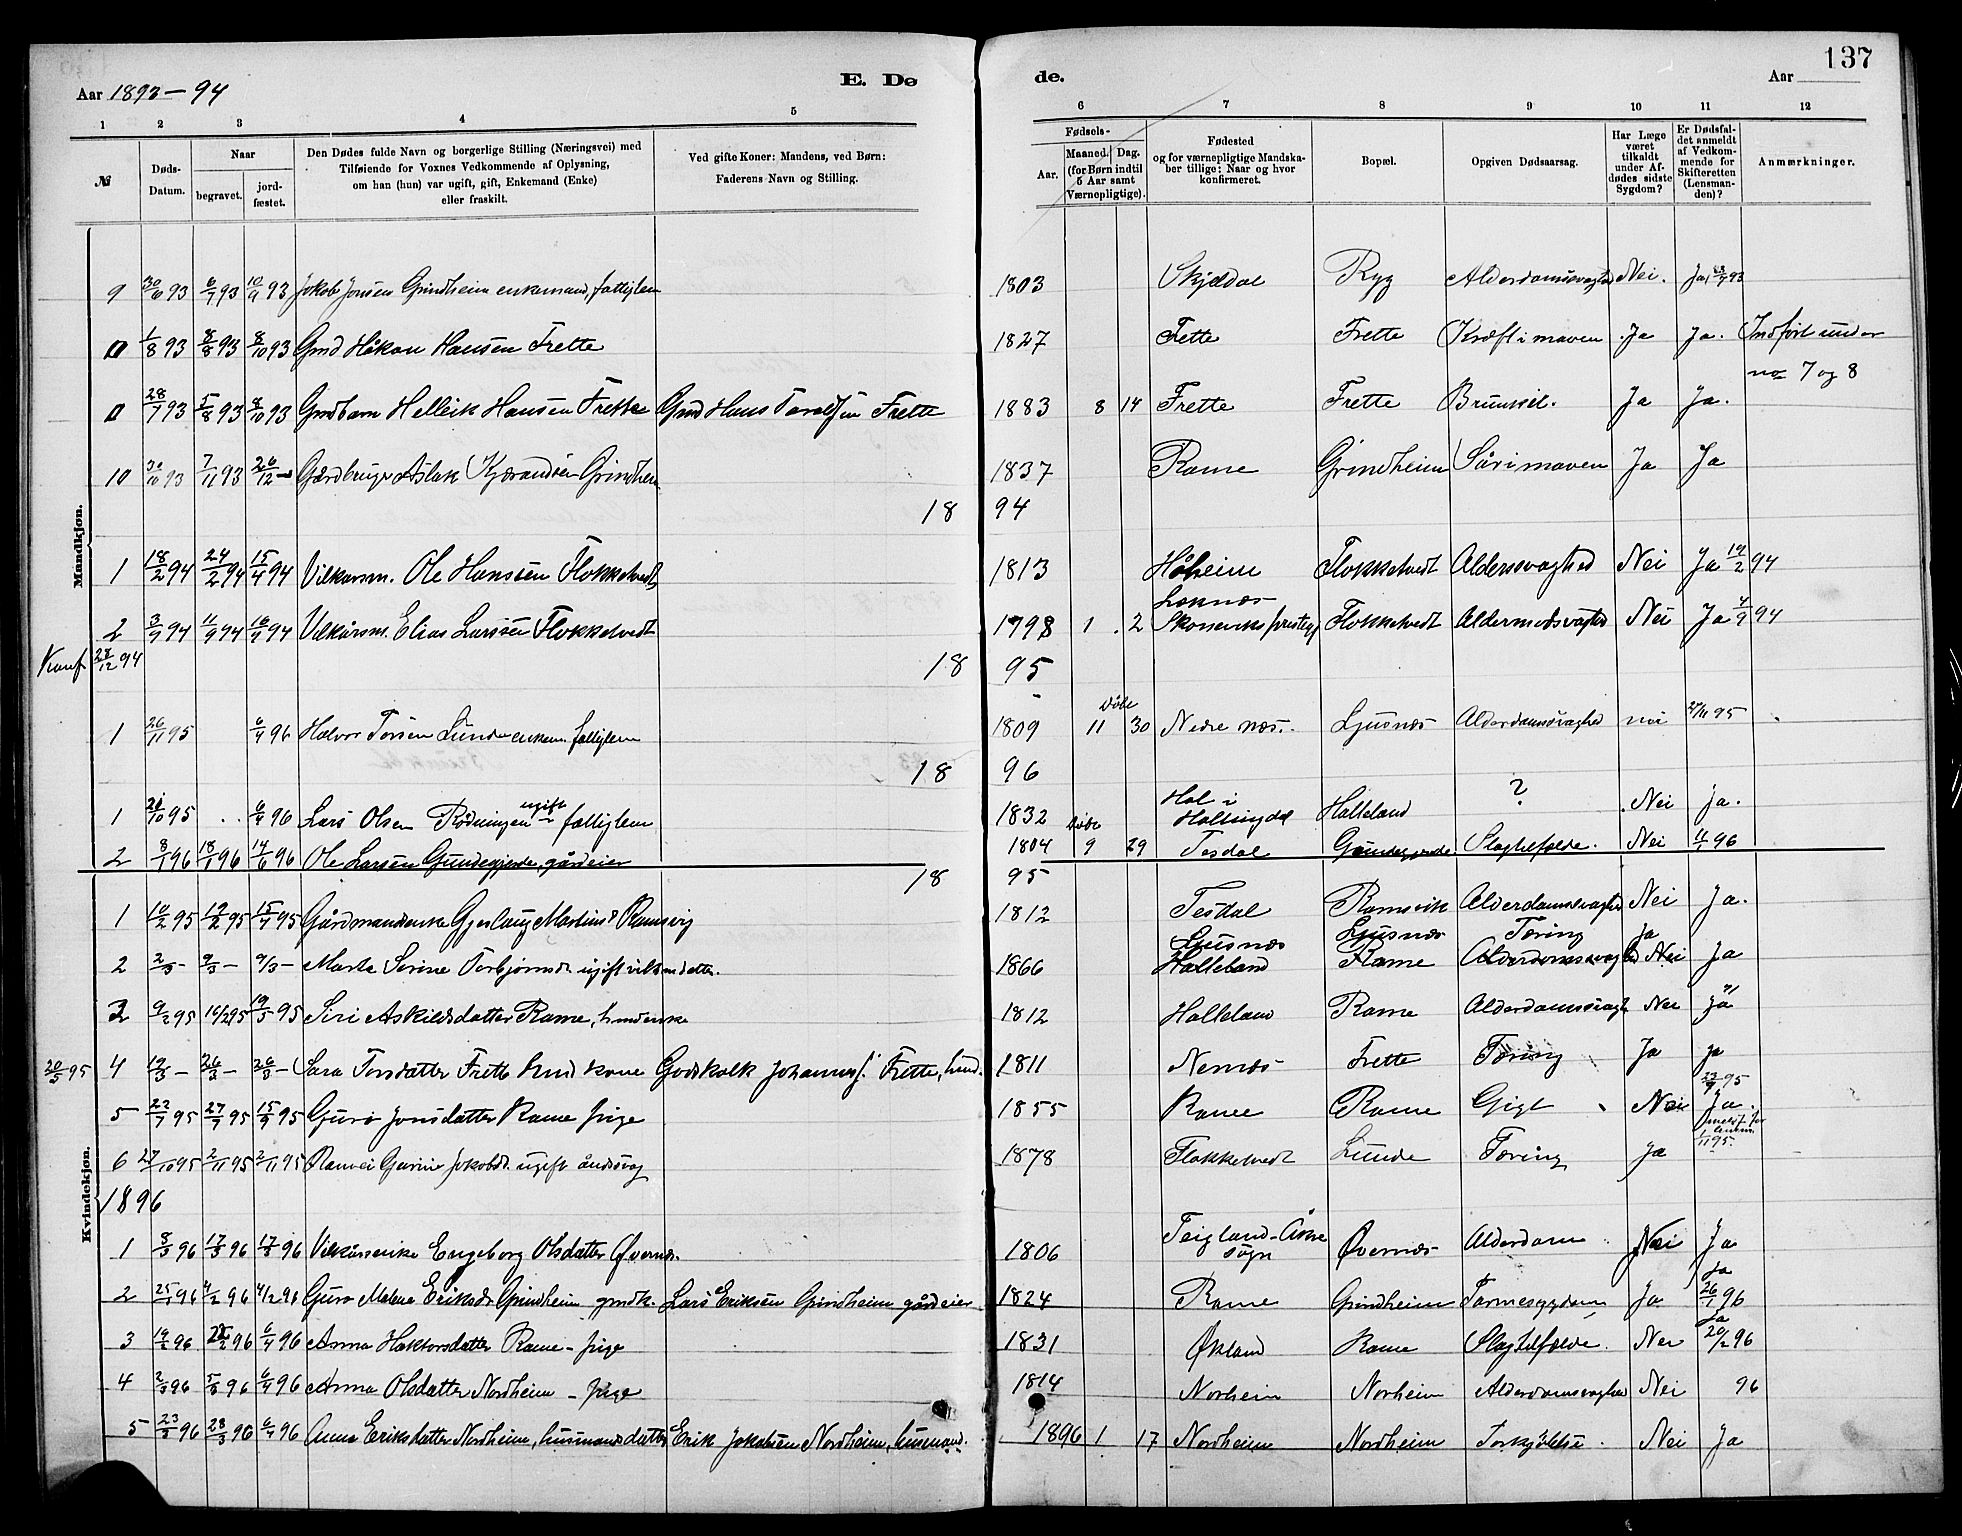 137
Aar 1893-94 E. Dø de. Aar
1 2 3 4 5 6 7 8 9 10 11 12
№ Døds-Datum. Naar begravet. jordfæstet. Den Dødes fulde Navn og borgerlige Stilling (Næringsvei) med Tilføiende for Voxnes Vedkommende af Oplysning, om han (hun) var ugift, gift, Enkemand (Enke) eller fraskilt. Ved gifte Koner: Mandens, ved Børn: Faderens Navn og Stilling. Fødsels- Aar. Maaned. Dag. (for Børn indtil 5 Aar samt Værnepligtige). Fødested og for værnepligtige Mandskaber tillige: Naar og hvor konfirmeret. Bopæl. Opgiven Dødsaarsag. Har Læge været tilkaldt under Afdødes sidste Sygdom? Er Dødsfaldet anmeldt af Vedkommende for Skifteretten (Lensmanden)? Anmærkninger.
Mandkjøn.
9 30/6 93 6/7 93 10/9 93 Jokob Jonsen Grindheim enkemand, fattiglem 1803 Skjeldal Ryg Alderdomssvaghed Nei. Ja
1/8 93 8/8 93 8/10 93 Gmd Håkon Hansen Frette 1827 Frette Frette Kræft i maven Ja Ja. Indført under
no 7 og 8
28/7 93 5/8 93 8/10 93 Gmdbarn Helleik Hansen Frette Gmd Hans Frette 1883 8 14 Frette Frette Ja Ja.
10 30/10 93 7/11 93 26/12 - Gardbruger Aslak Grindheim 1837 Rame Grindheim Sår i maven Ja Ja
18 94
1 18/2 94 24/2 94 15/4 94 Vilkårsm. Ole Hanssen Flokketvedt 1813 Håheim Flokketvedt Alderssvaghed Nei Ja 19/2 94
2 3/9 94 11/9 94 16/9 94 Vilkårsm. Elias Larssen Flokketvedt 1798 1 2 Leknæs Skonevik prestegj Flokketvedt Nei Ja 4/9 94
Konf 27/12 94 18 95
1 26/11 95 6/4 96 Halvor Torsen Lunde enkem. fattiglem 1809 døbt 11 30 Nedre næs. Ljusnæs Alderdomssvaghed nei 27/11 95
18 96
1 20/10 95 6/4 96 Lars Olsen Rødningen ugift fattiglem 1832 Hol i Hallingdal Halleland ? Nei ja.
2 8/1 96 18/1 96 14/6 96 Ole Larsen Gundegjerde, gårdeier 1804 døbt 9 29 Tesdal Gundegjerde Slagtilfælde. Nei 11/1 96
Kvindekjøn.
18 95
1 10/2 95 19/2 95 15/4 95 Gårdmandsenke Gjerlaug Martinsd Ramsvig 1812 Tesdal Ramsvik Alderdomssvaghed Nei Ja.
2 2/3 - 9/3 - 9/3 - Marta Serine Torbjørnsdr. ugift datter. 1866 Ljusnæs Ljusnæs Tæring ja Ja
3 9/2 95 16/2 95 19/5 95 Siri Askildsdatter Rame, 1812 Halleland Rame Alderdomssvagh Nei ja
20/5 95 4 19/3 - 26/3 - 26/3 - Sara Torsdatter Frette kone Godskalk Johannes. Frette, 1811 Nernæs Frette Tæring Ja ja
5 22/7 95 27/7 95 15/9 95 Guro Jonsdatter Rame pige 1855 Rame Rame Gigt Nei 23/7 95 Ja.
6 27/10 95 2/11 95 2/11 95 Ranvei Gurine Jokobsd. ugift åndssvag 1878 Flokketvedt Lunde Tæring Ja 1/11 95
1896
1 8/3 96 17/3 96 17/3 96 Vilkårsenke Engeborg Olsdatter Øvernæs. 1806 Teigland - Åkre sogn Øvernæs Alderdom Nei Ja
2 25/1 96 4/2 96 4/2 96 Guro Malene Eriksdr. Grindheim gmdk. Lars Eriksen Grindheim gårdeier 1824 Rame Grindheim Tarmesygdom Ja ja 26/1 96
3 19/2 96 25/2 96 6/4 96 Anna Haktorsdatter Rame - pige 1831 Økland Rame Slagtilfælde. Nei ja 20/2 96
4 2/3 96 5/3 96 6/4 96 Anna Olsdatter Nordheim - pige 1814 Norheim Norheim Alderdomssvaghed Nei 96
5 23/3 96 28/3 96 6/4 96 Anna Eriksdatter Nordheim, husmandsdatter Erik Jakobsen Nordheim, husmand. 1896 1 17 Nordheim Nordheim Forkjølelse. Nei Ja